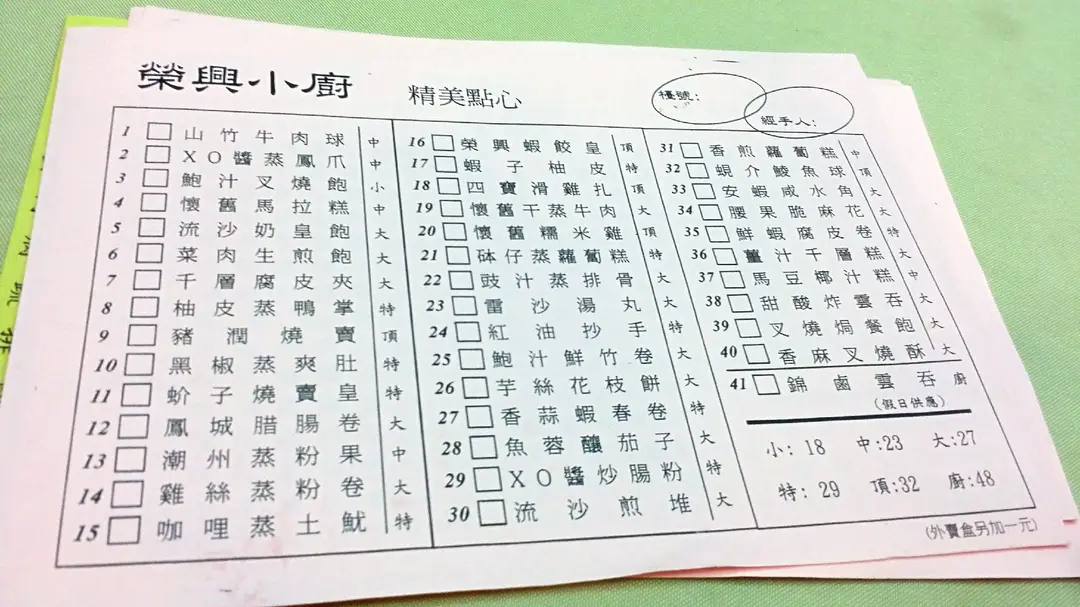 榮興小廚
精美點心
檯號：
經手人：
1 山竹牛肉球 中
2 XO醬蒸鳳爪 中
3 鮑汁叉燒飽 小
4 懷舊馬拉糕 中
5 流沙奶皇飽 大
6 菜肉生煎飽 大
7 千層腐皮夾 大
8 柚皮蒸鴨掌 特
9 豬潤燒賣 頂
10 黑椒蒸爽肚 特
11 蚧子燒賣皇 特
12 鳳城腊腸卷 大
13 潮州蒸粉果 中
14 雞絲蒸粉卷 大
15 咖哩蒸土魷 特
16 榮興蝦餃皇 頂
17 蝦子柚皮 特
18 四寶滑雞扎 頂
19 懷舊干蒸牛肉 大
20 懷舊糯米雞 頂
21 砵仔蒸蘿蔔糕 特
22 豉汁蒸排骨 大
23 雷沙湯丸 大
24 紅油抄手 特
25 鮑汁鮮竹卷 大
26 芋絲花枝餅 大
27 香蒜蝦春卷 特
28 魚蓉釀茄子 大
29 XO醬炒腸粉 特
30 流沙煎堆 大
31 香煎蘿蔔糕 中
32 蜆介鯪魚球 頂
33 安蝦咸水角 大
34 腰果脆麻花 大
35 鮮蝦腐皮卷 特
36 薑汁千層糕 大
37 馬豆椰汁糕 中
38 甜酸炸雲吞 大
39 叉燒焗餐飽 大
40 香麻叉燒酥 大
41 錦鹵雲吞 廚
（假日供應）
小：18 中：23 大：27
特：29 頂：32 廚：48
（外賣盒另加一元）